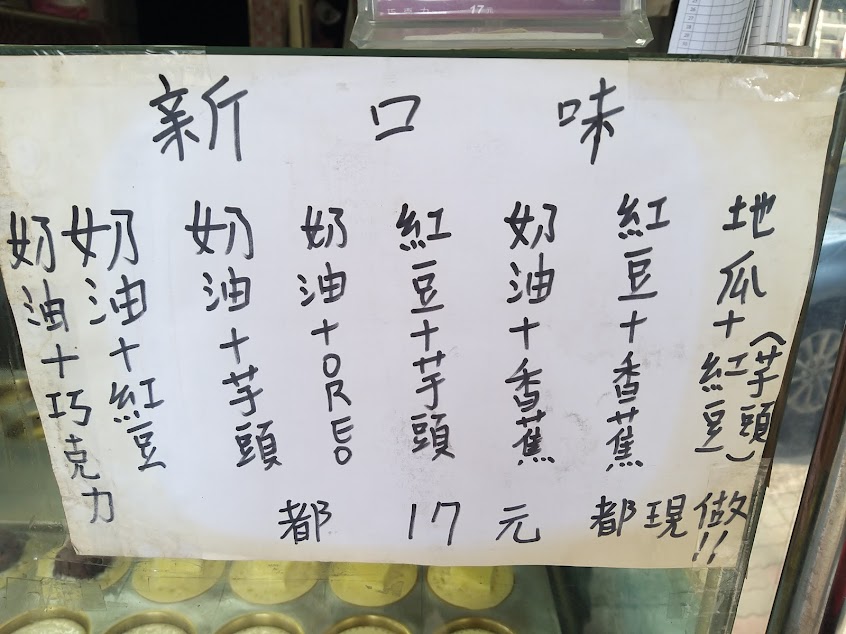 17元
新口味
地瓜+紅豆(芋頭)
紅豆+香蕉
奶油+香蕉
紅豆+芋頭
奶油+OREO
奶油+芋頭
奶油+紅豆
奶油+巧克力
都17元 都現做!!